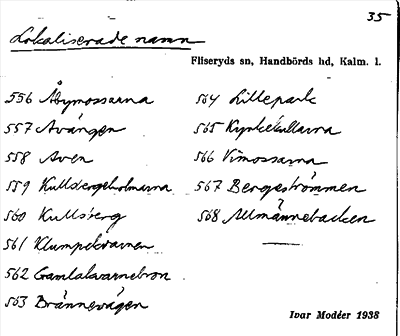 35
Lokaliserade namn
Fliseryds sn, Handbörds hd, Kalm. l.
556 Åbymossarna
557 Avången
558 Aven
559 Kullsbergsholmarna
560 Kullsberg
561 Klumpekvarnen
562 Gamlakvarnebron
563 Brännevägen
564 Lillepark
565 Kyrkekullarna
566 Vimossarna
567 Bergeströmmen
568 Allmännebacken
Ivar Modéer 1938